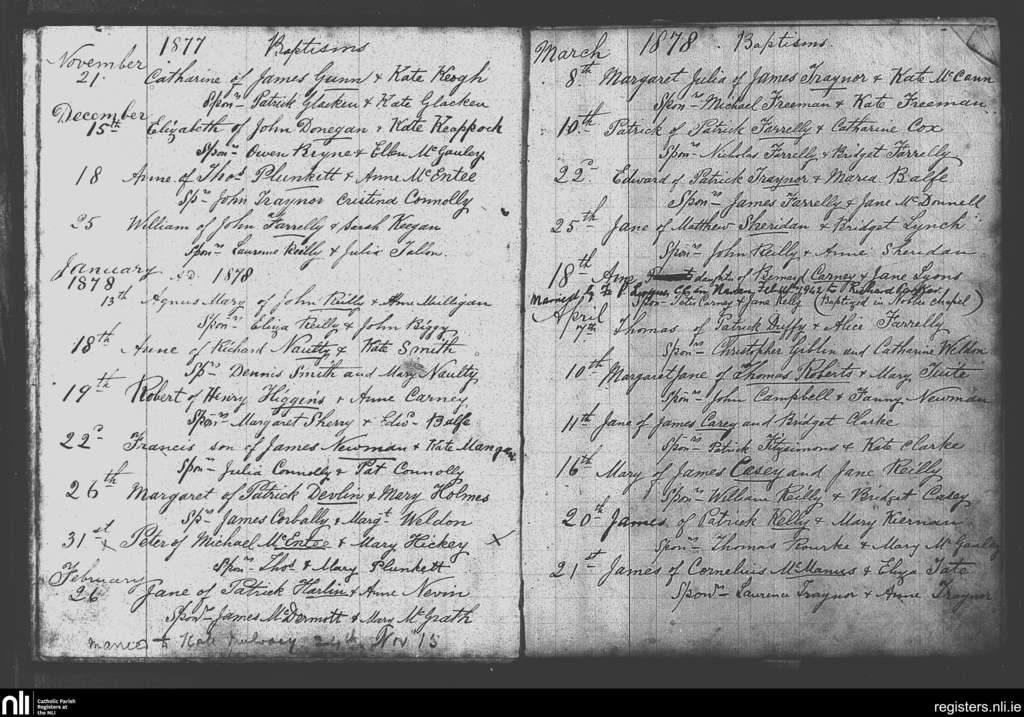 1877 Baptisms
November
21. Catharine of James Gunn & Kate Keogh
Sponrs Patrick Glacken & Kate Glacken
December
15th Elizabeth of John Donegan & Kate Keappock
Sponrs Owen Beyne & Ellen McGauley
18 Anne of Thos Plunkett & Anne McEntee
Sprs John Traynor Cristina Connolly
25 William of John Farrelly & Sarah Keegan
Sponrs Laurence Reilly & Julia Tallon.
January
1878 A.D. 1878
13th Agnus Mary of John Reilly & Anne Mullegan
Sponrs Eliza Reilly & John Biggy
18th Anne of Richard Naulty & Kate Smith
Sprs Dennis Smith and Mary Naulty
19th Robert of Henry Higgins & Anne Carney
Sponrs Margaret Sherry & Edwd Balfe
22d Francis son of James Newman & Kate Mangan
Sponrs Julia Connolly & Pat Connolly
26th Margaret of Patrick Devlin & Mary Holmes
Sprs James Corbally & Margt Weldon
31st x Peter of Michael McEntee & Mary Hickey x
Sponrs Thos & Mary Plunkett
February
26 Jane of Patrick Harlin & Anne Nevin
Sponrs James McDermott & Mary McGrath
Married to Kate 24th Nov '15
March 1878 Baptisms.
8th Margaret Julia of James Traynor & Kate McCann
Sponrs Michael Freeman & Kate Freeman
10th Patrick of Patrick Farrelly & Catharine Cox
Sponrs Nicholas Farrelly & Bridget Farrelly
22d Edward of Patrick Traynor & Maria Balfe
Sponrs James Farrelly & Jane McDonnell
25th Jane of Matthew Sheridan & Bridget Lynch
Sponrs John Reilly & Annie Sheridan
18th Ane daughter of Bernard Carney & Jane Lyons
Married by Fr in Navan, Feb 1942 to Richard
Sponrs Pats Carney & Jane Kelly (Baptized in Nobber Chapel)
April
7th Thomas of Patrick Duffy & Alice Farrelly
Sponrs Christopher Giblin and Catharine Weldon
10th Margaret Jane of Thomas Roberts & Mary Tuite
Sponrs John Campbell & Fanny Newman
11th Jane of James Carey and Bridget Clarke
Sponrs Patrick Fitzsimons & Kate Clarke
16th Mary of James Casey and Jane Reilly
Sponrs William Reilly & Bridget Casey
20th James of Patrick Kelly & Mary Kiernan
Sponrs Thomas Rourke & Mary McGauley
21st James of Cornelius McManus & Eliza Tate
Sponrs Laurence Traynor & Anne Traynor
nli Catholic Parish
Registers at
the NLI
registers.nli.ie